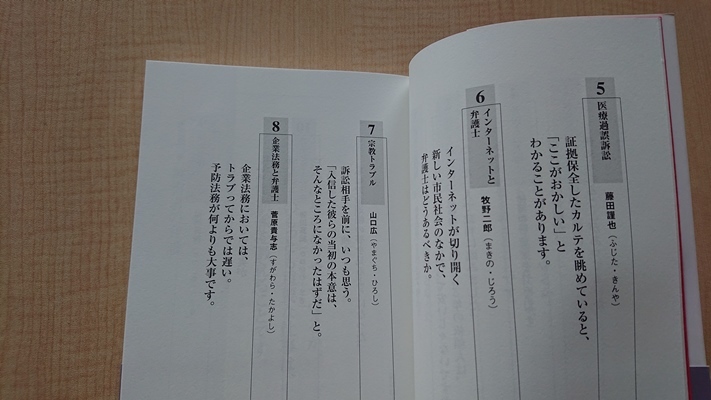 5
医療過誤訴訟
藤田謹也(ふじた・きんや)
証拠保全したカルテを眺めていると、
「ここがおかしい」と
わかることがあります。
6
インターネットと
弁護士
牧野二郎(まきの・じろう)
インターネットが切り開く
新しい市民社会のなかで、
弁護士はどうあるべきか。
7
宗教トラブル
山口広(やまぐち・ひろし)
訴訟相手を前に、いつも思う。
「入信した彼らの当初の本意は、
そんなところになかったはずだ」と。
8
企業法務と弁護士
菅原貴与志(すがわら・たかよし)
企業法務においては、
トラブってからでは遅い。
予防法務が何よりも大事です。